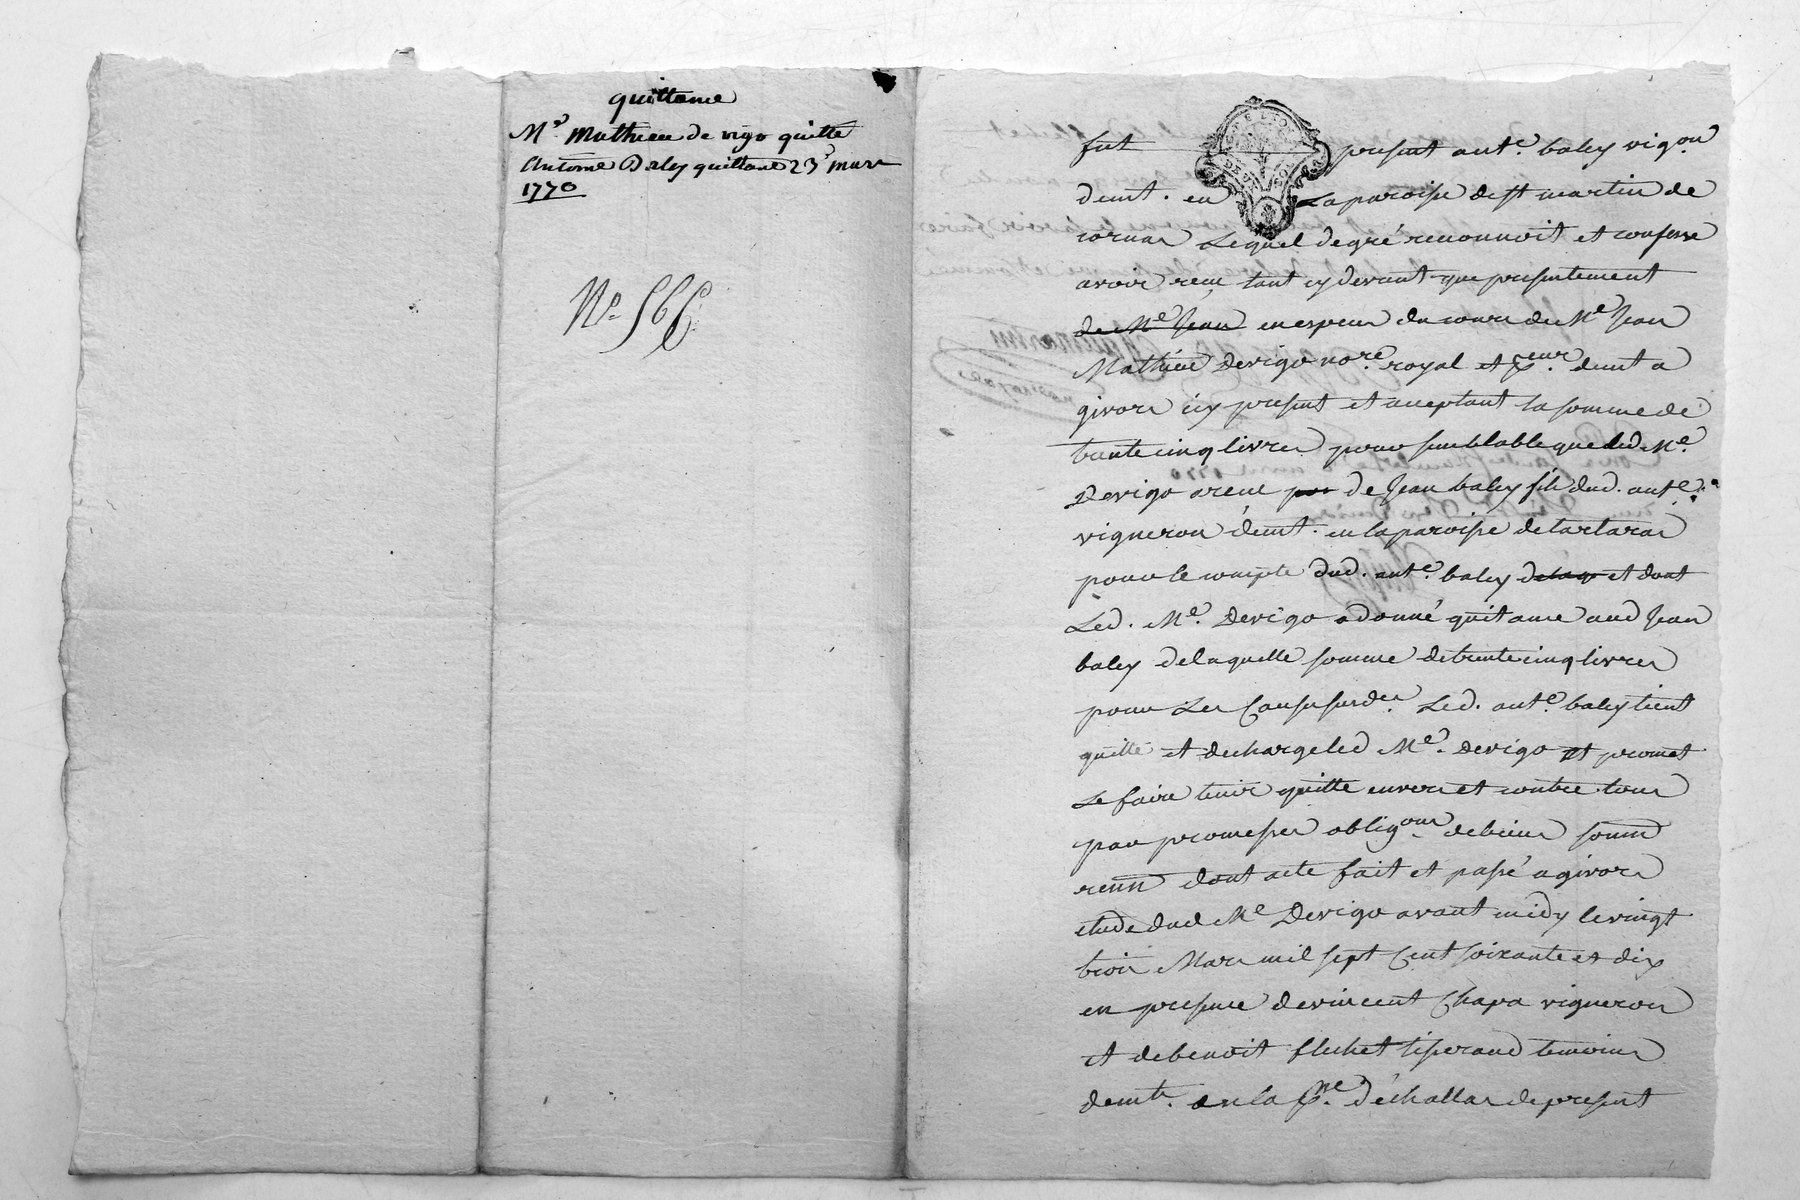 quittance
Me Mathieu de vigo quitté
Antoine Baley quittance 23e mars
1770
No 566
fut present ante. baley vigon
demt. en la paroisse de st martin de
cornas Lequel de gré reconnoit et confesse
avoir recu tant cy devant que presentement
de Me Jean en especes du cours de Me Jean
Mathieu Devigo nore. royal et demt a
givors icy present et acceptant la somme de
trente cinq livres pour semblable que led. Me.
Devigo a recu par de Jean baley fils dud. ante.
vigneron demt. en la paroisse de tartaras
pour le compte dud. ante. baley et dont
Led. Me. Devigo a donné quitance aud Jean
baley de laquelle somme de trente cinq livres
pour Les Causes susdes. Led. ante. baley tient
quitte et decharge led Me. Devigo et promet
Le faire tenir quitte envers et contre tous
par promesses obligons. de biens soumn
renn dont acte fait et passé a givors
etude dud Me Devigo avant midy le vingt
trois Mars mil sept Cent soixante et dix
en presence de vincent Chapa vigneron
et de benoit flechet tisserand temoins
demts. en la pse. d'échallas de present